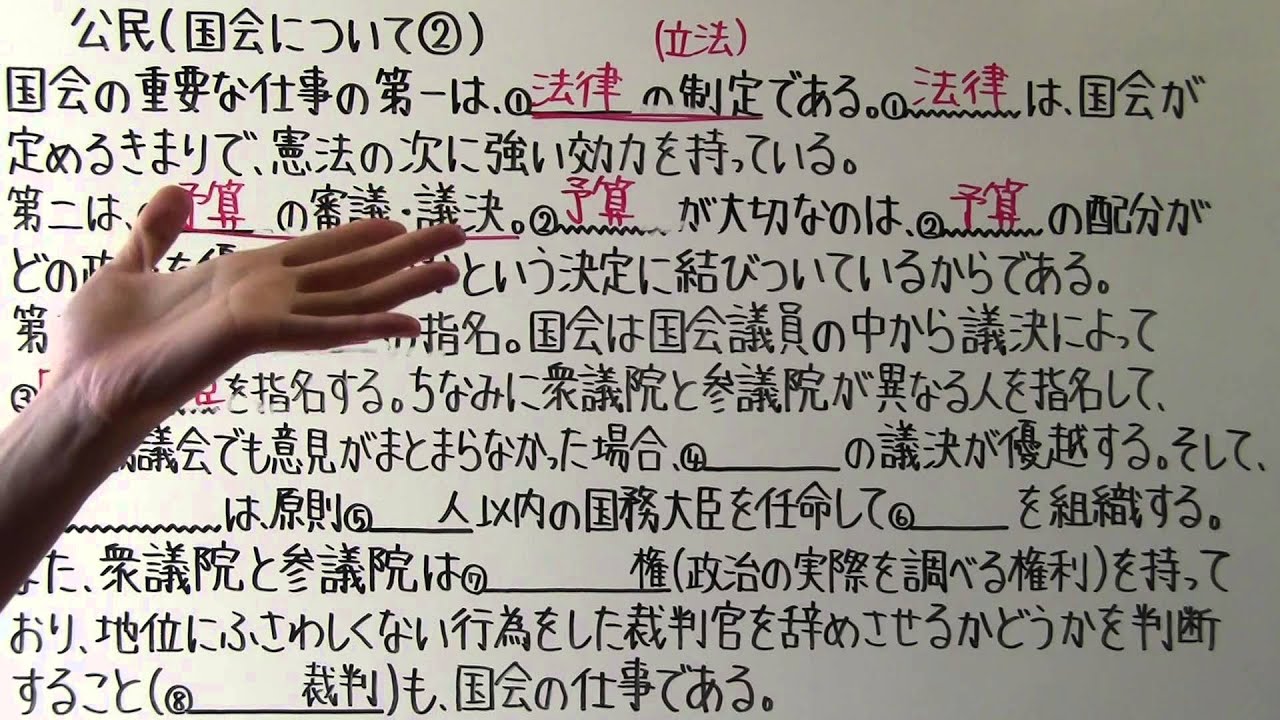 公民(国会について②) (立法)
国会の重要な仕事の第一は、①法律の制定である。①法律は、国会が
定めるきまりで、憲法の次に強い効力を持っている。
第二は、予算の審議・議決。②予算が大切なのは、②予算の配分が
どの政 という決定に結びついているからである。
第 の指名。国会は国会議員の中から議決によって
③ 臣を指名する。ちなみに衆議院と参議院が異なる人を指名して、
議会でも意見がまとまらなかった場合、④______の議決が優越する。そして、
は、原則⑤____人以内の国務大臣を任命して⑥____を組織する。
また、衆議院と参議院は⑦________権(政治の実際を調べる権利)を持って
おり、地位にふさわしくない行為をした裁判官を辞めさせるかどうかを判断
すること(⑧______裁判)も、国会の仕事である。